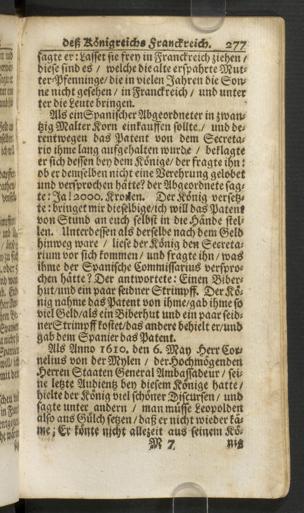 deß Königreichs Franckreich. 277
sagte er: Lasset sie frey in Franckreich ziehen /
diese sind es / welche die alte ersparte Mut-
ter-Pfenninge / die in vielen Jahren die Son-
ne nicht gesehen / in Franckreich / und unter
die Leute bringen.
Als ein Spanischer Abgeordneter in zwan-
tzig Malter Korn einkauffen sollte / und de-
rentwegen das Patent von dem Secreta-
rio ihme lang aufgehalten wurde / beklagte
er sich dessen bey dem Könige / der fragte ihn:
ob er demselben nicht eine Verehrung gelobet
und versprochen hätte? der Abgeordnete sag-
te: Ja! 2000. Kronen. Der König versetz-
te: bringet mir dieselbige / ich will das Patent
von Stund an euch selbst in die Hände stel-
len. Unterdessen als derselbe nach dem Geld
hinweg ware / liese der König den Secreta-
rium vor sich kommen / und fragte ihn / was
ihme der Spanische Commissarius verspro-
chen hätte? Der antwortete: Einen Biber-
hut / und ein paar seidner Strimpff. Der Kö-
nig nahme das Patent von ihme / gab ihme so
viel Geld / als ein Biberhut und ein paar seid-
ner Strimpff kostet / das andere behielt er / und
gab dem Spanier das Patent.
Als Anno 1610. den 6. May Herr Cor-
nelius von der Mylen / der Hochmögenden
Herren Staaten General Ambassadeur / sei-
ne letzte Audientz bey diesem Könige hatte /
hielte der König viel schöner Discursen / und
sagte unter andern / man müsse Leopolden
also aus Gülch setzen / daß er nicht wieder kä-
me; Er könte nicht allezeit aus seinem Kö-
M 7 nig